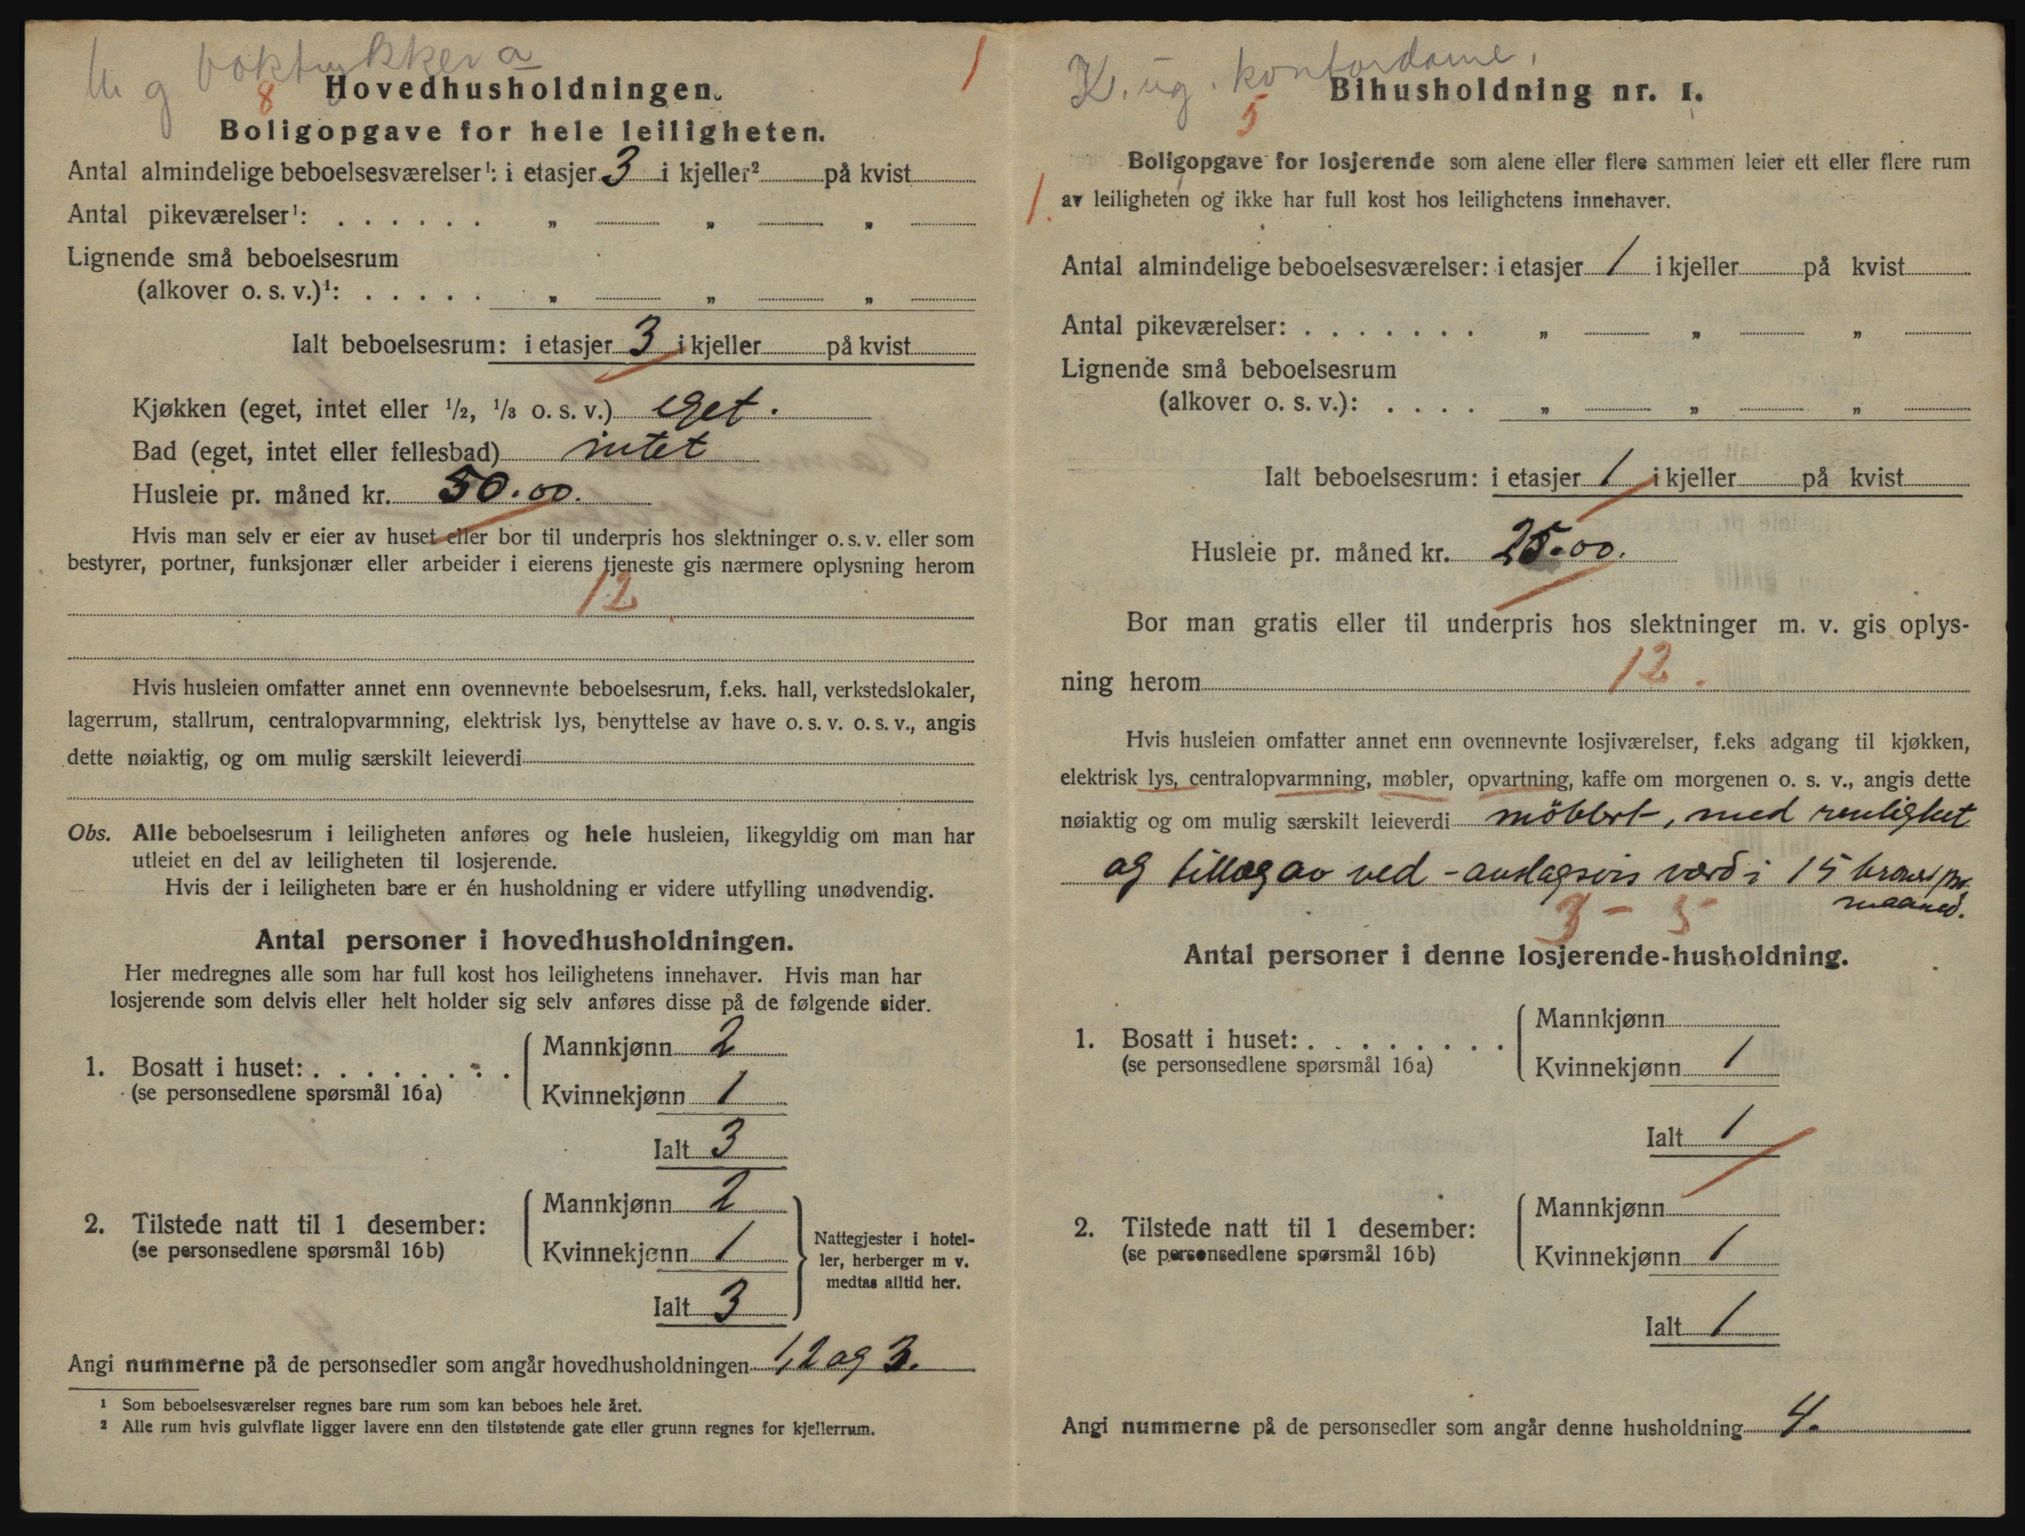 M g boktrykker a
8
1
Hovedhusholdningen.
Boligopgave for hele leiligheten.
Antal almindelige beboelsesværelser¹: i etasjer 3 i kjeller² på kvist
Antal pikeværelser¹: . . . . . . „ „ „
Lignende små beboelsesrum
(alkover o. s. v.)¹: . . . . . „ „ „
Ialt beboelsesrum: i etasjer 3 i kjeller på kvist
Kjøkken (eget, intet eller 1/2, 1/3 o. s. v.) eget.
Bad (eget, intet eller fellesbad) intet
Husleie pr. måned kr. 50.00.
Hvis man selv er eier av huset eller bor til underpris hos slektninger o. s. v. eller som
bestyrer, portner, funksjonær eller arbeider i eierens tjeneste gis nærmere oplysning herom
12
Hvis husleien omfatter annet enn ovennevnte beboelsesrum, f.eks. hall, verkstedslokaler,
lagerrum, stallrum, centralopvarmning, elektrisk lys, benyttelse av have o. s. v. o. s. v., angis
dette nøiaktig, og om mulig særskilt leieverdi
Obs. Alle beboelsesrum i leiligheten anføres og hele husleien, likegyldig om man har
utleiet en del av leiligheten til losjerende.
Hvis der i leiligheten bare er én husholdning er videre utfylling unødvendig.
Antal personer i hovedhusholdningen.
Her medregnes alle som har full kost hos leilighetens innehaver. Hvis man har
losjerende som delvis eller helt holder sig selv anføres disse på de følgende sider.
1. Bosatt i huset: . . . . . . . .
(se personsedlene spørsmål 16a)
Mannkjønn 2
Kvinnekjønn 1
Ialt 3
2. Tilstede natt til 1 desember:
(se personsedlene spørsmål 16b)
Mannkjønn 2
Kvinnekjønn 1
Ialt 3
Nattegjester i hotel-
ler, herberger m v.
medtas alltid her.
Angi nummerne på de personsedler som angår hovedhusholdningen 1, 2 og 3.
¹ Som beboelsesværelser regnes bare rum som kan beboes hele året.
² Alle rum hvis gulvflate ligger lavere enn den tilstøtende gate eller grunn regnes for kjellerrum.
K. ug. kontordame.
5
Bihusholdning nr. 1.
1.
Boligopgave for losjerende som alene eller flere sammen leier ett eller flere rum
av leiligheten og ikke har full kost hos leilighetens innehaver.
Antal almindelige beboelsesværelser: i etasjer 1 i kjeller på kvist
Antal pikeværelser: . . . . . . . „ „ „
Lignende små beboelsesrum
(alkover o. s. v.): . . . . „ „ „
Ialt beboelsesrum: i etasjer 1 i kjeller på kvist
Husleie pr. måned kr. 25.00.
Bor man gratis eller til underpris hos slektninger m. v. gis oplys-
ning herom 12.
Hvis husleien omfatter annet enn ovennevnte losjiværelser, f.eks adgang til kjøkken,
elektrisk lys, centralopvarmning, møbler, opvartning, kaffe om morgenen o. s. v., angis dette
nøiaktig og om mulig særskilt leieverdi møblert, med renlighet
og tillæg av ved - anslagsvis værd i 15 kroner pr.
maaned.
3 - 5
Antal personer i denne losjerende-husholdning.
1. Bosatt i huset: . . . . . . . .
(se personsedlene spørsmål 16a)
Mannkjønn
Kvinnekjønn 1
Ialt 1
2. Tilstede natt til 1 desember:
(se personsedlene spørsmål 16b)
Mannkjønn
Kvinnekjønn 1
Ialt 1
Angi nummerne på de personsedler som angår denne husholdning 4.